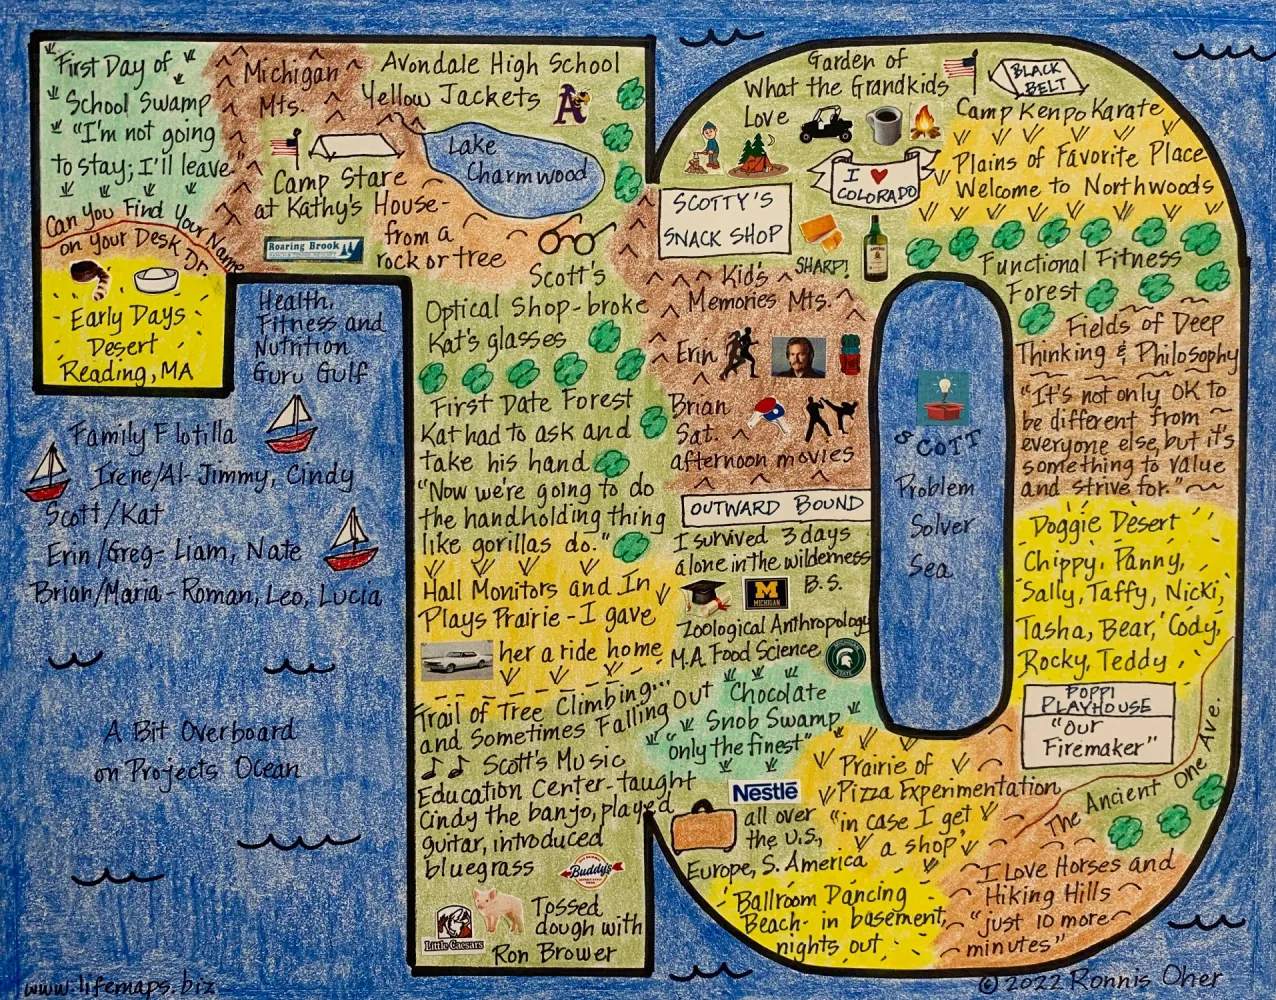 First Day of
School Swamp
"I'm not going
to stay; I'll leave"
Can you Find Your Name
on Your Desk Dr.
Early Days
Desert
Reading, MA
Michigan
Mts.
Camp Stare
at Kathy's House-
from a
rock or tree
Roaring Brook
Avondale High School
Yellow Jackets
A
Lake
Charmwood
Scott's
Optical Shop-broke
Kat's glasses
First Date Forest
Kat had to ask and
take his hand
"Now we're going to do
the handholding thing
like gorillas do."
Hall Monitors and In
Plays Prairie - I gave
her a ride home
Trail of Tree Climbing...
and Sometimes Falling Out
Scott's Music
Education Center-taught
Cindy the banjo, played
guitar, introduced
bluegrass
Buddy's
Little Caesars
Tossed
dough with
Ron Brower
Health,
Fitness and
Nutrition
Guru Gulf
Family Flotilla
Irene/Al-Jimmy, Cindy
Scott/Kat
Erin/Greg-Liam, Nate
Brian/Maria-Roman, Leo, Lucia
A Bit Overboard
on Projects Ocean
www.lifemaps.biz
Garden of
What the Grandkids
Love
I ♥
COLORADO
BLACK
BELT
Camp Kenpo Karate
Plains of Favorite Place
Welcome to Northwoods
SCOTTY'S
SNACK SHOP
SHARP!
Kid's
Memories Mts.
Erin
Brian
Sat.
afternoon movies
OUTWARD BOUND
I survived 3 days
alone in the wilderness
M
MICHIGAN
B.S.
Zoological Anthropology
M.A. Food Science
Chocolate
Snob Swamp
"only the finest"
Nestlé
all over
the U.S.,
Europe, S. America
Ballroom Dancing
Beach- in basement,
nights out
Functional Fitness
Forest
Fields of Deep
Thinking & Philosophy
"It's not only OK to
be different from
everyone else, but it's
something to value
and strive for."
SCOTT
Problem
Solver
Sea
Doggie Desert
Chippy, Panny,
Sally, Taffy, Nicki,
Tasha, Bear, Cody,
Rocky, Teddy
POPPI
PLAYHOUSE
"Our
Firemaker"
The Ancient One Ave.
Prairie of
Pizza Experimentation
"in case I get
a shop"
I Love Horses and
Hiking Hills
"just 10 more
minutes"
© 2022 Ronnis Oher